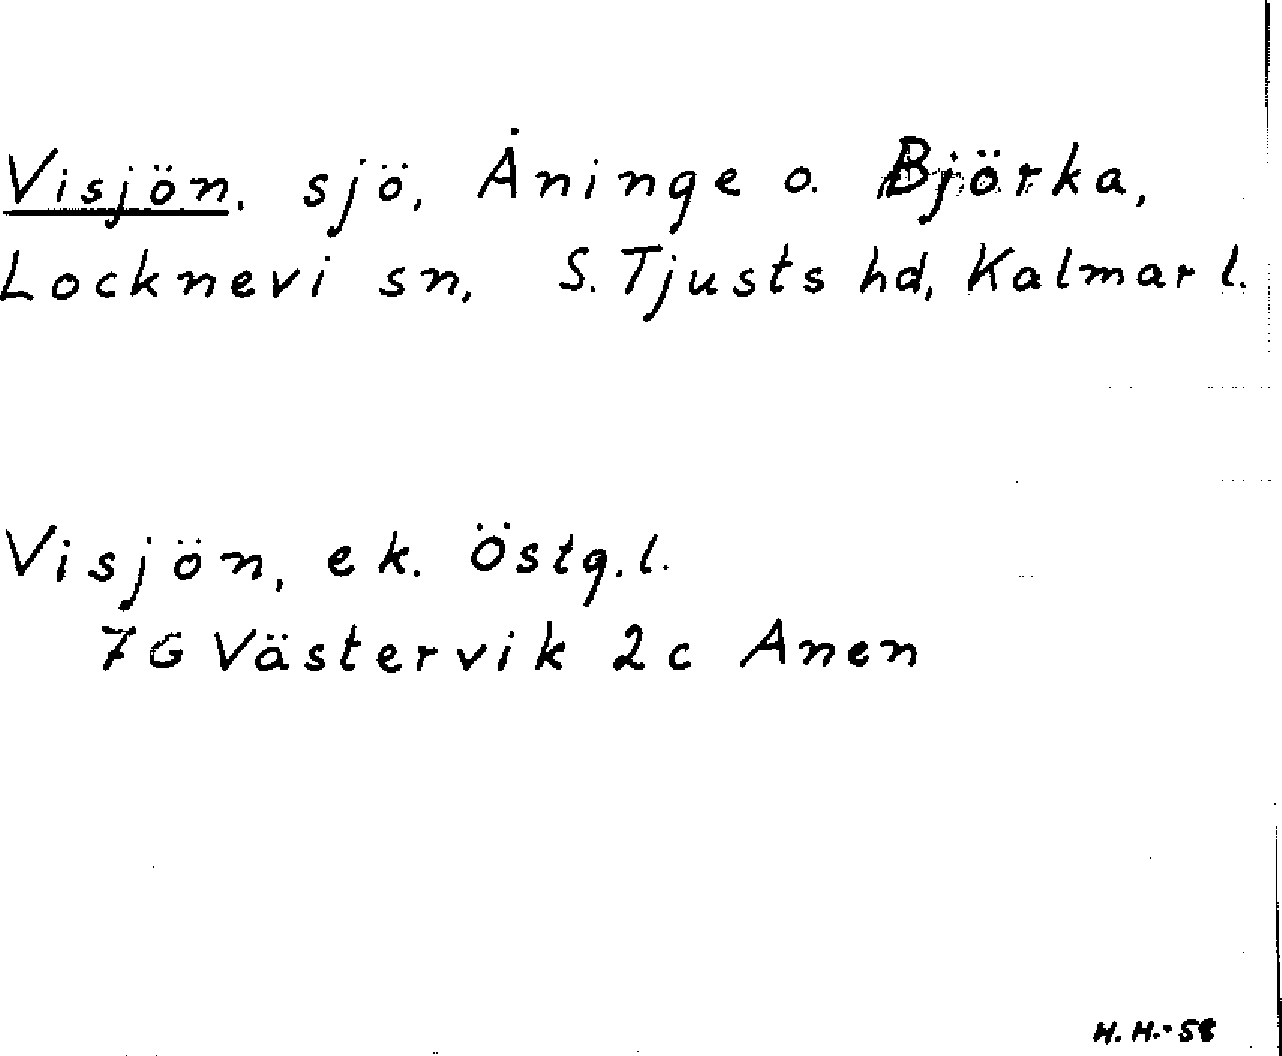 Visjön, sjö, Åninge o. Björka,
Locknevi sn, S. Tjusts hd, Kalmar l.
Visjön, ek. Östg. l.
7G Västervik 2c Anen
H. H. -58